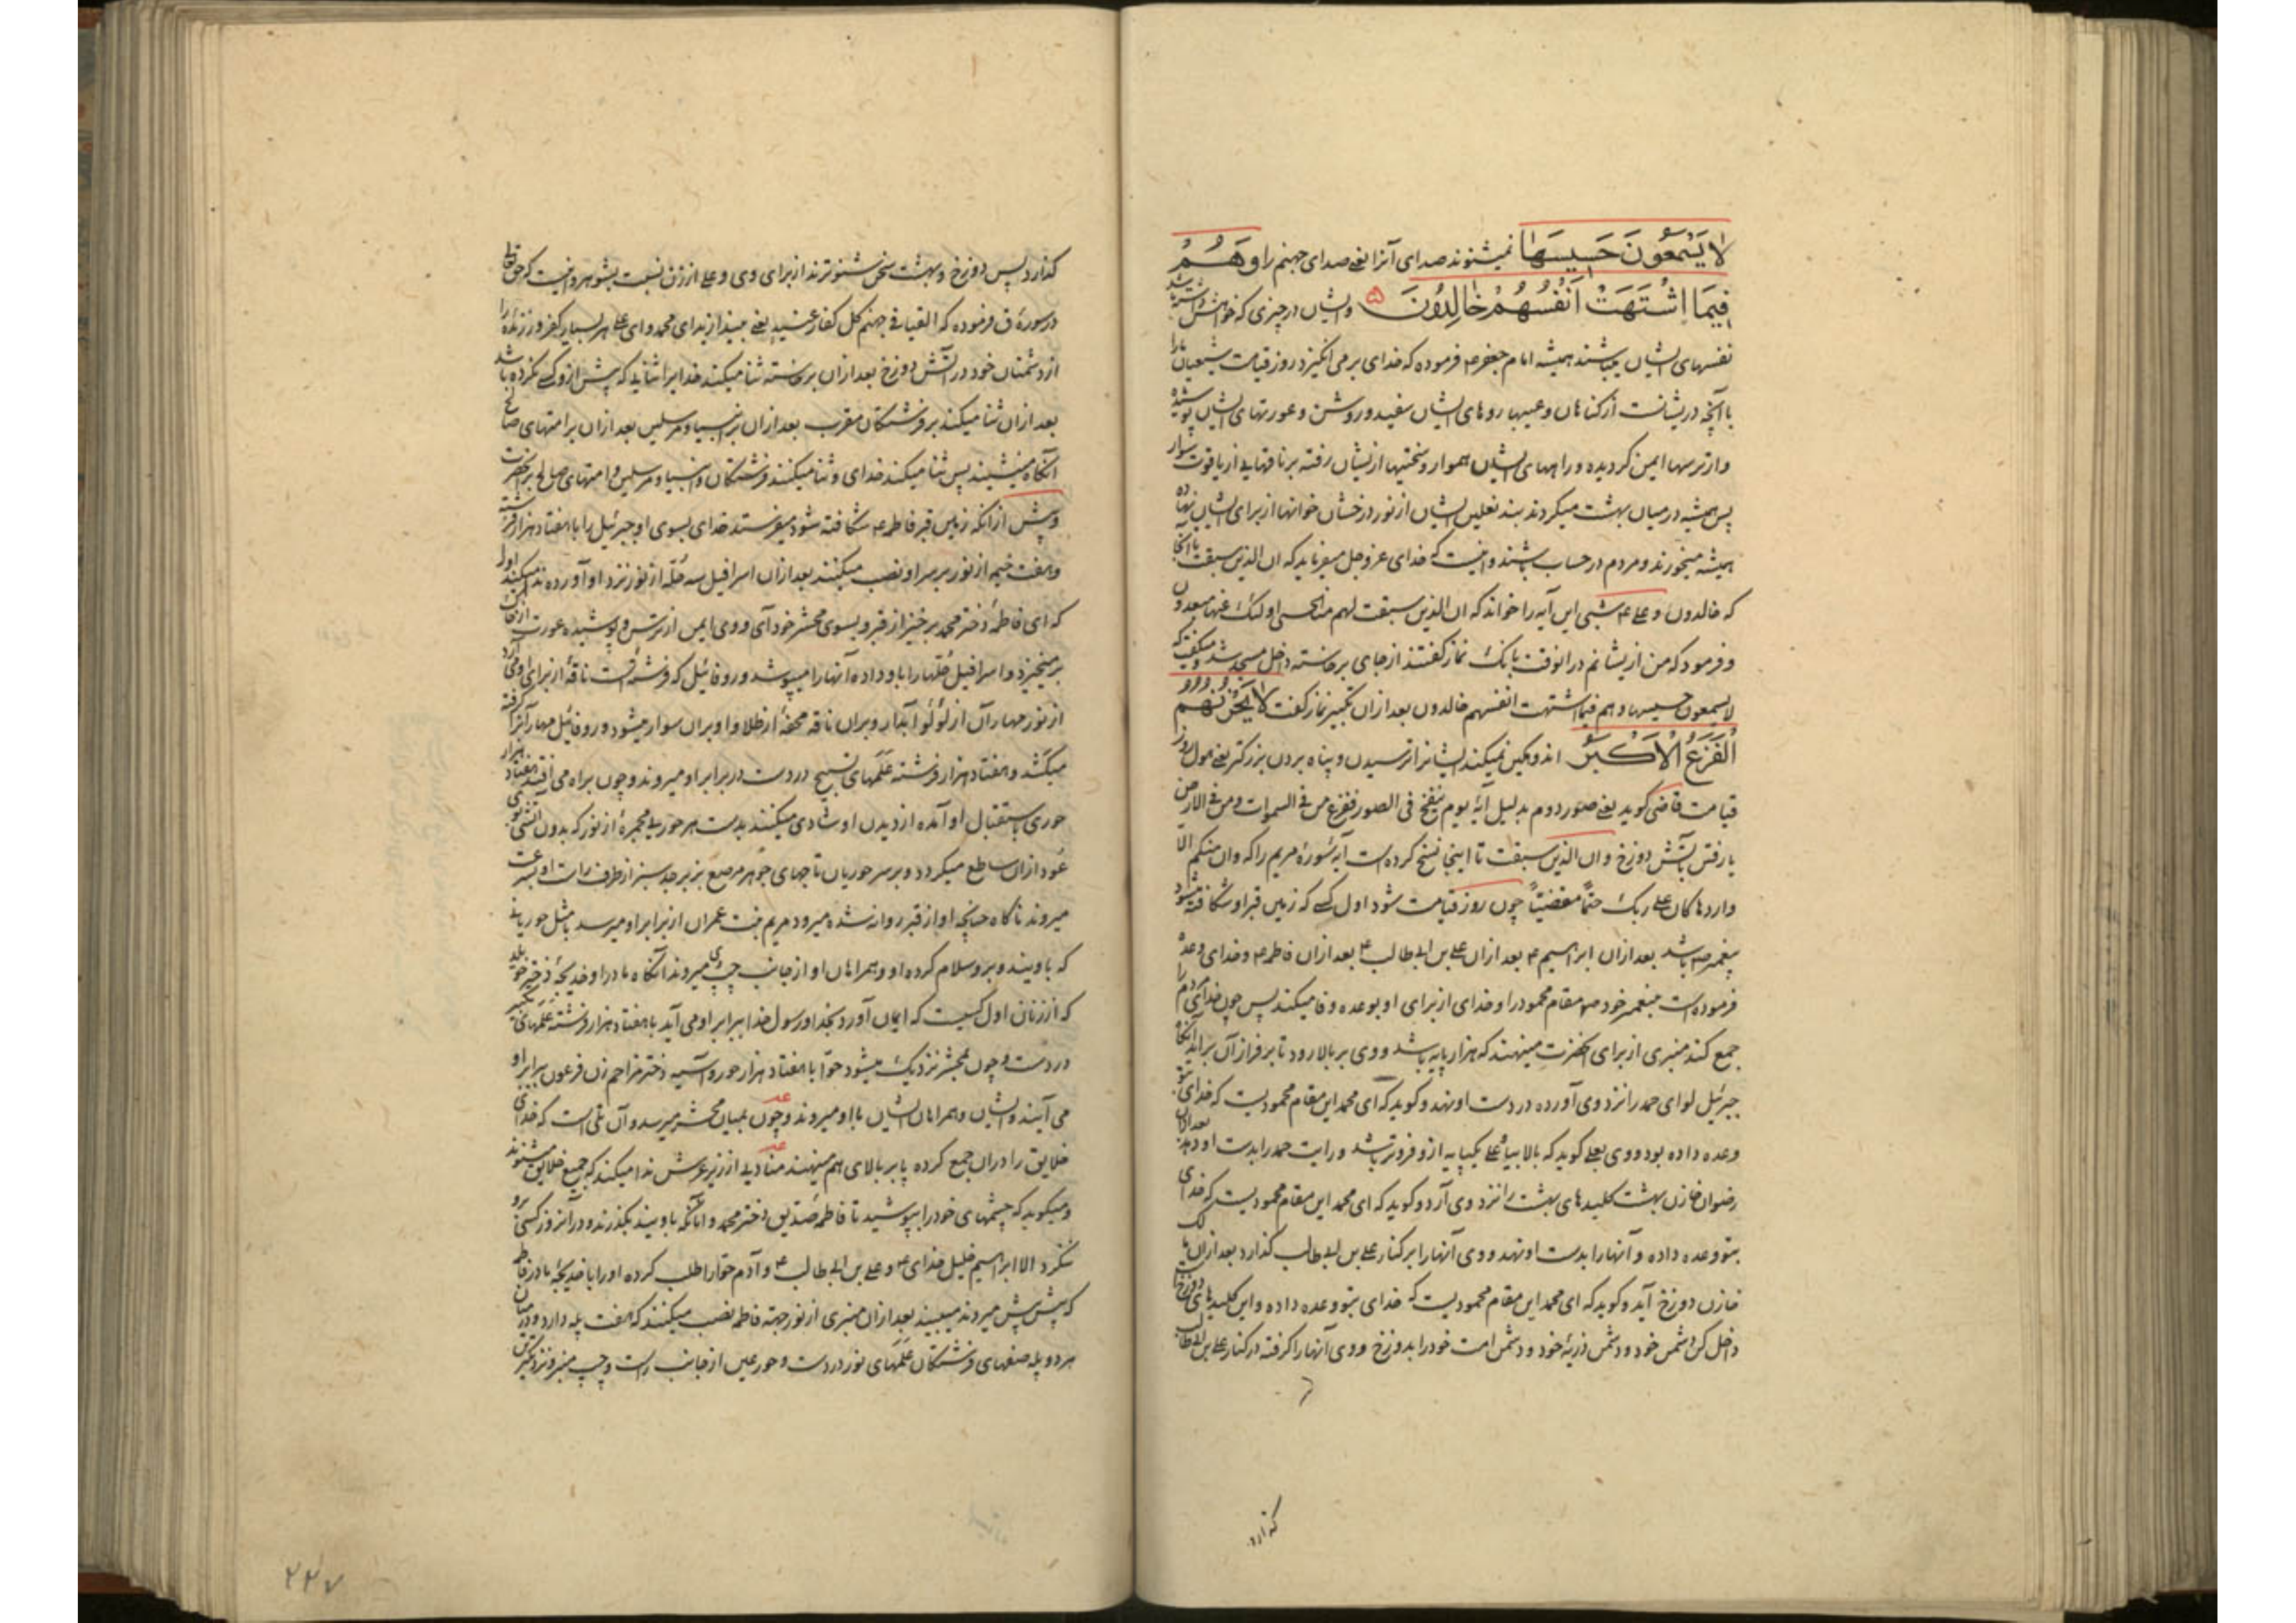 لا يَسْمَعُونَ حَسِيسَهَا نمیشنوند صدای آنرا یعنی صدای جهنم را وَهُمْ
فِيمَا اشْتَهَتْ أَنْفُسُهُمْ خَالِدُونَ وایشان در چیزی که خواهش داشته باشد
نفسهای ایشان میباشند همیشه امام جعفر ع فرموده که خدای بر می انگیزد روز قیامت شیعیان مارا
با آنچه در یشانست از کناهان وعیبها روهای ایشان سفید وروشن وعورتهای ایشان پوشیده
واز ترسها ایمن کردیده وراههای ایشان هموار وسختیها از یشان رفته بر ناقهایی از یاقوت سوار
پس همیشه در میان بهشت میکردند بند نعلین ایشان از نور درخشان خوانها از برای ایشان نهاده
همیشه میخورند ومردم در حساب باشند واینست که خدای عز وجل میفرماید که ان الذین سبقت تا آنجا
که خالدون وعلی ع شبی این آیه را خواند که ان الذین سبقت لهم منا الحسنی اولئک عنها مبعدون
وفرمود که من ازیشانم در انوقت بانک نماز کفتند از جای برخاسته داخل مسجد شد ومیکفت که
لا یسمعون حسیسها وهم فیما اشتهت انفسهم خالدون بعد ازان تکبیر نماز کفت لا يَحْزُنُهُمُ
الْفَزَعُ الْأَكْبَرُ اندوهکین نمیکند ایشانرا ترسیدن وپناه بردن بزرکتر یعنی هول روز
قیامت قاضی کوید یعنی صور دوم بدلیل آیهٔ یوم ینفخ فی الصور ففزع من فی السموات ومن فی الارض
یا رفتن بآتش دوزخ وان الذین سبقت تا اینجا نسخ کرده است آیهٔ سورهٔ مریم را که وان منکم الا
واردها کان علی ربک حتمًا مقضیًا چون روز قیامت شود اول کسی که زمین قبر او شکافته میشود
پیغمبر ص باشد بعد ازان ابراهیم ع بعد ازان علی بن ابی طالب ع بعد ازان فاطمه ع وخدای وعده
فرموده است پیغمبر خود ص مقام محمود را وخدای از برای او بوعده وفا میکند پس چون خدای مردم را
جمع کند منبری از برای آنحضرت مینهند که هزار پایه باشد ووی بر بالا رود تا بر فراز آن برآید آنکاه
جبرئیل لوای حمد را نزد وی آورده در دست او نهد وکوید که ای محمد این مقام محمودیست که خدای بتو
وعده داده بود ووی بعلی کوید که بالا بیا وعلی یکپایه ازو فروتر باشد ورایت حمد را بدست او دهد بعد ازان
رضوان خازن بهشت کلیدهای بهشت را نزد وی آرد وکوید که ای محمد این مقام محمودیست که خدای
بتو وعده داده وآنهارا بدست او نهد ووی آنهارا بر کنار علی بن ابی طالب کذارد بعد ازان
خازن دوزخ آید وکوید که ای محمد این مقام محمودیست که خدای بتو وعده داده واین کلیدهای دوزخ
داخل کن دشمن خود ودشمن ذریهٔ خود ودشمن امت خود را بدوزخ ووی آنهارا کرفته در کنار علی بن ابی طالب
کذارد
کذارد پس دوزخ وبهشت سخن شنوترند از برای وی وعلی از زن نسبت بشوهر واینست که حق تعالی
در سورهٔ ق فرموده که القیا فی جهنم کل کفار عنید یعنی بیندازید ای محمد وای علی هر بسیار کفر ورزنده را
از دشمنان خود در آتش دوزخ بعد ازان برخاسته ثنا میکند خدایرا ثنایی که پیش ازو کسی نکرده باشد
بعد ازان ثنا میکند بر فرشتکان مقرب بعد ازان بر انبیا ومرسلین بعد ازان بر امتهای صالح
آنکاه مینشیند پس ثنا میکند خدای وثنا میکنند فرشتکان وانبیا ومرسلین وامتهای صالح بر آنحضرت
وپیش ازانکه زمین قبر فاطمه ع شکافته شود میفرستد خدای بسوی او جبرئیل را با هفتاد هزار فرشته
وهفت خیمه از نور بر سر او نصب میکنند بعد ازان اسرافیل سه حلّه از نور نزد او آورده ندا میکند اورا
که ای فاطمه دختر محمد برخیز از قبر وبسوی محشر خود آی ووی ایمن از ترس وپوشیده عورت
برمیخیزد واسرافیل حلّهارا باو داده آنهارا میپوشد وروفائیل که فرشته است ناقهٔ از برای او می آرد
از نور مهار آن از لؤلؤ آبدار وبران ناقه محفهٔ از طلا واو بران سوار میشود وروفائیل مهار آنرا کرفته
میکشد وهفتاد هزار فرشته علمهای تسبیح در دست در برابر او میروند وچون براه می افتد هفتاد هزار
حوری باستقبال او آمده از دیدن او شادی میکنند بدست هر حوریی مجمرهٔ از نور که بدون آتش بوی
عود ازان ساطع میکردد وبر سر حوریان تاجهای جوهر مرصع بزبرجد سبز از طرف راست او بسرعت
میروند ناکاه چنانچه او از قبر روانه شده میرود مریم بنت عمران از برابر او میرسد با مثل حوریانی
که با ویند وبر وسلام کرده او وهمراهان او از جانب چپ وی میروند آنکاه مادر او خدیجه دختر خویلد
که از زنان اول کسیست که ایمان آورد بخدا ورسول خدا ببرابر او می آید با هفتاد هزار فرشته علمهای تکبیر
در دست وچون بمحشر نزدیک میشود حوّا با هفتاد هزار حور وآسیه دختر مزاحم زن فرعون ببرابر او
می آیند وایشان وهمراهان ایشان با او میروند وچون بمیان محشر میرسد وآن تلّی است که خدای
خلایق را دران جمع کرده پا بر بالای هم مینهند منادیی از زیر عرش ندا میکند که جمیع خلایق میشنوند
ومیکوید که چشمهای خود را بپوشید تا فاطمه صدیق دختر محمد وآنانکه با ویند بکذرند ودر آنروز کسی برو
ننکرد الا ابراهیم خلیل خدای ع وعلی بن ابی طالب ع وآدم حوّا را طلب کرده اورا با خدیجه مادر فاطمه
که پیش پیش میروند میبیند بعد ازان منبری از نور جهة فاطمه نصب میکنند که هفت پله دارد ودر میان
هر دو پله صفهای فرشتکان علمهای نور در دست وحور عین از جانب راست وچپ منبر ونزدیکترین
۲۲۷